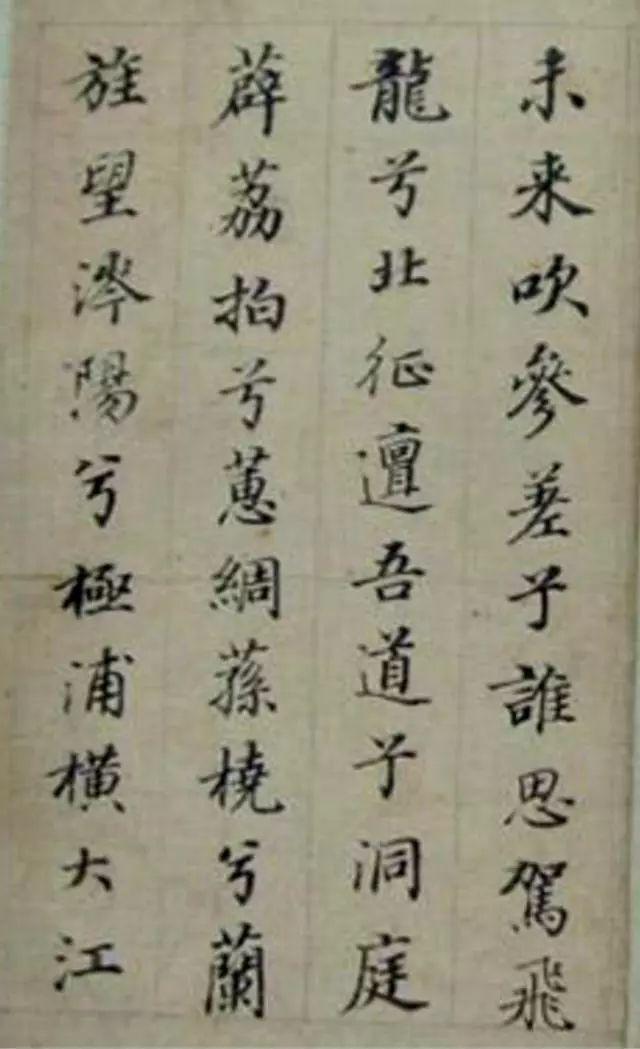 未来吹參差兮誰思駕飛
龍兮北征邅吾道兮洞庭
薜荔拍兮蕙綢蓀橈兮蘭
旌望涔陽兮極浦橫大江